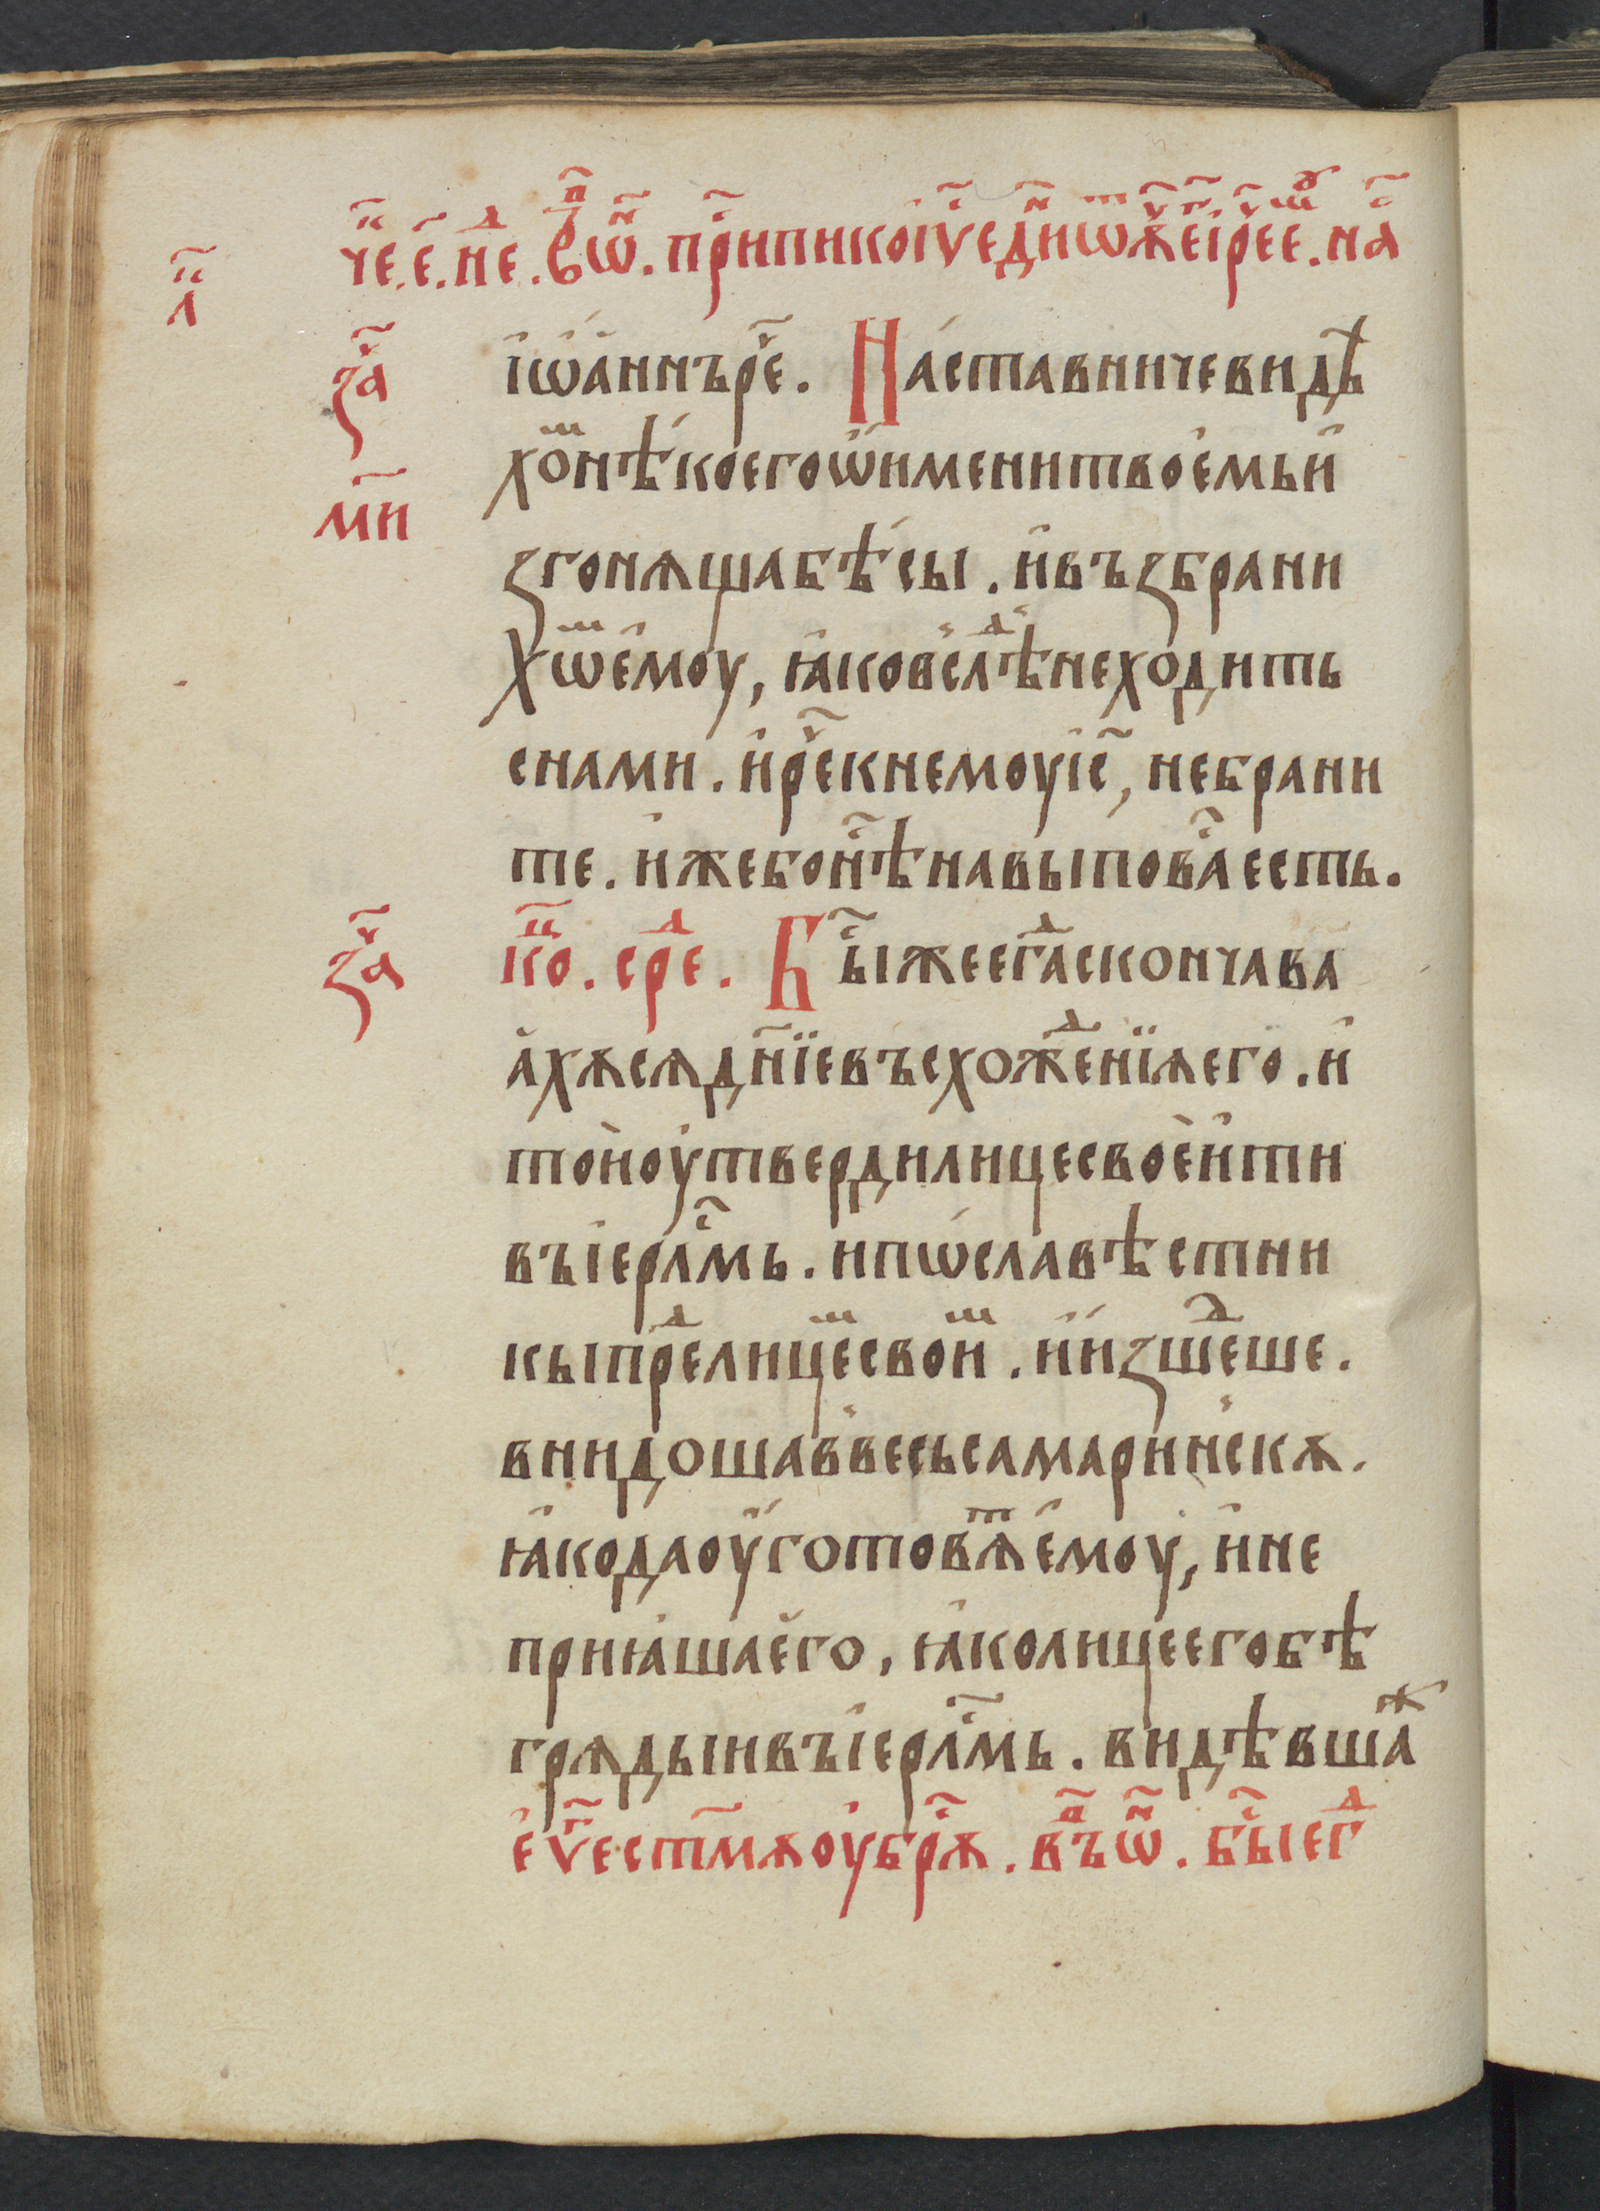 че҃ . е҃ . не . в҃ѡ҃ . при҃пикоі҆ѵедни҃ѿже҃і҆рее . на҃
л҃
за҃
і҆ѡ҆а́ннъре҃ . На́ставничевидѣ
хо̑нѣ́коегоѿи́мениитвое҆мьи҆
ми҃
згонѧщабѣ́сы . и҆възбрани
хѿе҆моу , ꙗ҆ковслѣⷣнеходить
снами . и҆ре҃кнемоуі҆с҃ , небрани
те . и҆жебон҃ѣнавыпов҃аесть .
за҃
ко҃ . среⷣ . Бы҃жеегдаⷣскончава
а҆хѫсѧдн҃їевъсхожⷣенїѧего . и҆
то́йоу҆твердилицесвое҆и҆ти
въі҆ерл҃мь . ипѡ́славѣстни
кыпреⷣлицеⷨсвоиⷨ . и҆и҆зшеⷣше .
внидошаввесьсамари́нскѫ .
ꙗ҆кодаоу҆готовѧⷮе҆моу , и҆не
приꙗ́шае҆го , ꙗ҆колицеегобѣ
грѧдыивъі҆ерл҃мь . видѣвшаⷤ
е҆ѵ҃естмѧоу҆бр҃ѧ . в҃ъѿ . бы҃егⷣ